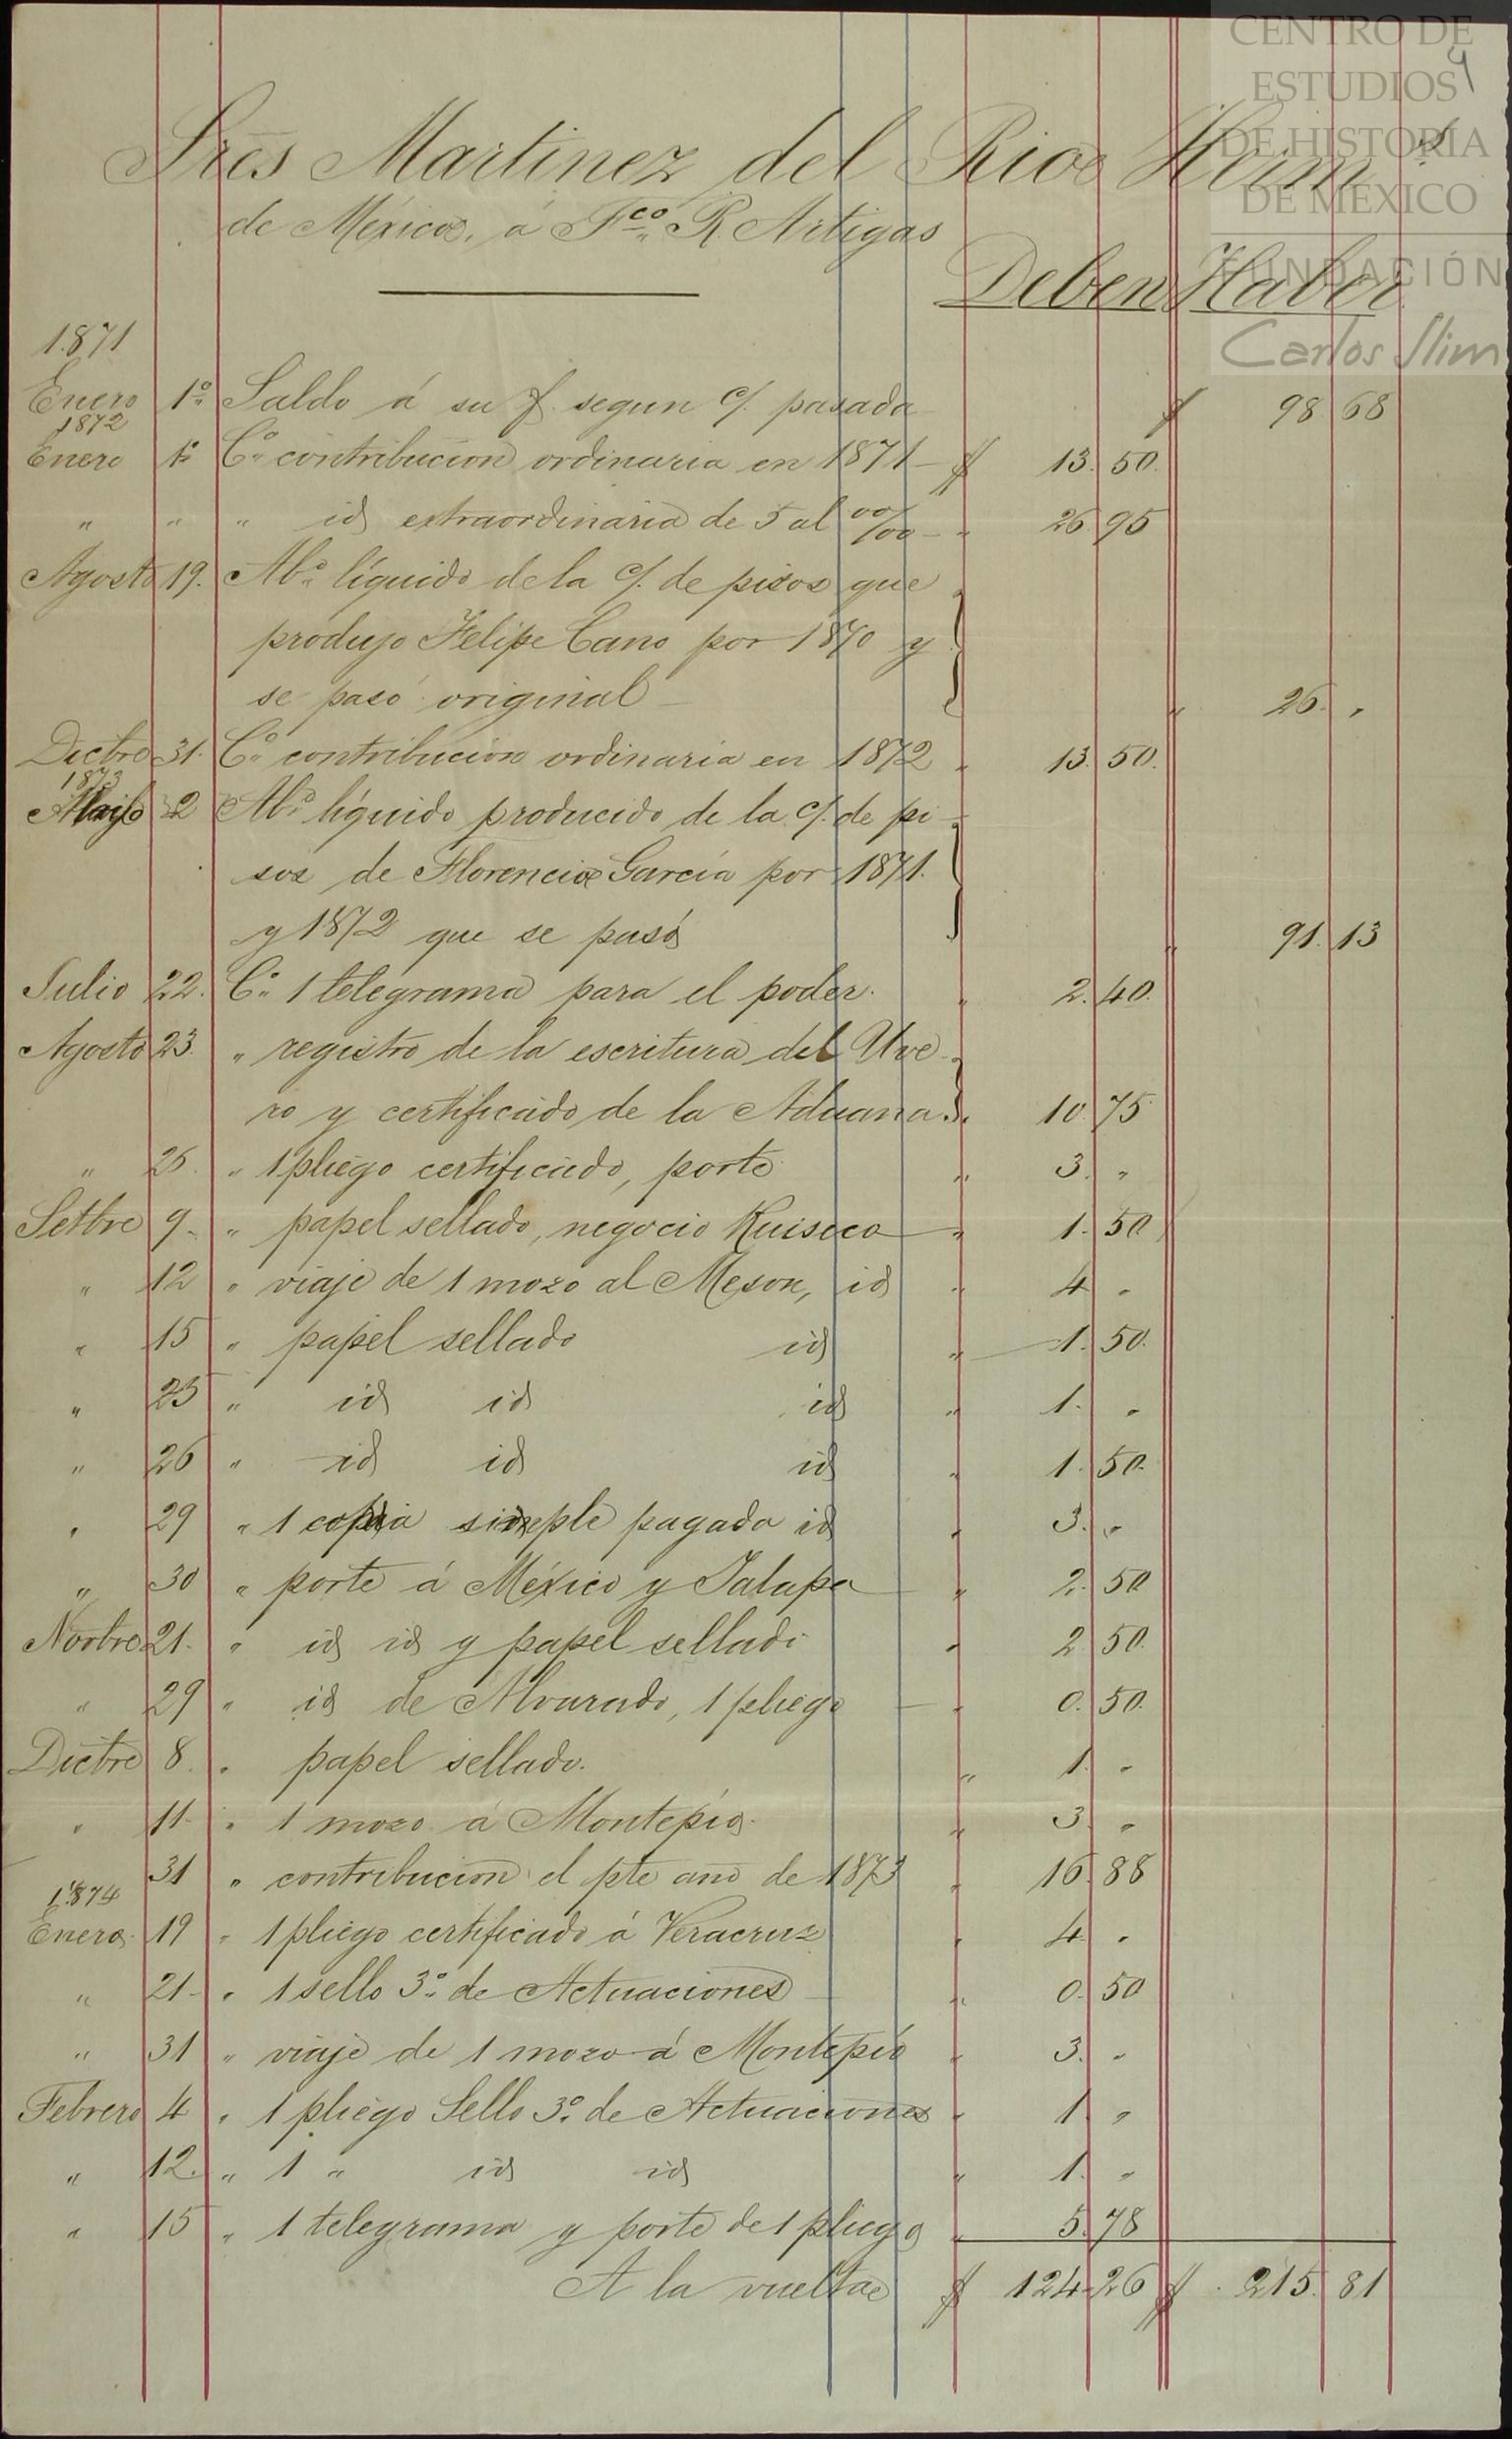 CENTRO DE
ESTUDIOS
DE HISTORIA
DE MÉXICO
FUNDACIÓN
Carlos Slim
9
Sres Martinez del Rio Hnos
de México, á Fco R. Artigas
Deben Haber
1871
Enero 1º Saldo á su f. segun c/. pasada $ 98 68
1872
Enero 1º Cº contribucion ordinaria en 1871 $ 13. 50.
" " " id extraordinaria de 5 al 00/00 " 26. 95
Agosto 19. Abº líquido de la c/. de pisos que
produjo Felipe Cano por 1870 y
se pasó original " 26. "
Dicbre 31. Cº contribucion ordinaria en 1872 " 13. 50.
1873
Mayo 2 Abº líquido producido de la c/. de pi
sos de Florencio García por 1871.
y 1872 que se pasó " 91. 13
Julio 22. Cº 1 telegrama para el poder. " 2. 40.
Agosto 23. " registro de la escritura del Uve
ro y certificado de la Aduana. " 10. 75
" 26. " 1 pliego certificado, porte " 3. "
Setbre 9 " papel sellado, negocio Ruiseco " 1. 50
" 12 " viaje de 1 mozo al Meson, id " 4 "
" 15 " papel sellado id " 1. 50.
" 25 " id id id " 1. "
" 26 " id id id " 1. 50.
" 29 " 1 copia simple pagada id " 3. "
" 30 " porte á México y Jalapa " 2. 50
Novbre 21. " id id y papel sellado " 2 50.
" 29 " id de Alvarado, 1 pliego " 0. 50.
Dicbre 8. " papel sellado. " 1. "
" 11. " 1 mozo á Montepío. " 3. "
31 " contribucion el pte año de 1873 " 16. 88
1874
Enero. 19 " 1 pliego certificado á Veracruz " 4 "
" 21 " 1 sello 3º de Actuaciones " 0. 50
" 31 " viaje de 1 mozo á Montepío " 3. "
Febrero 4 " 1 pliego Sello 3º de Actuaciones " 1 "
" 12. " 1 " id id " 1. "
" 15 " 1 telegrama y porte de 1 pliego " 5. 78
A la vuelta $ 124. 26 $ 215. 81